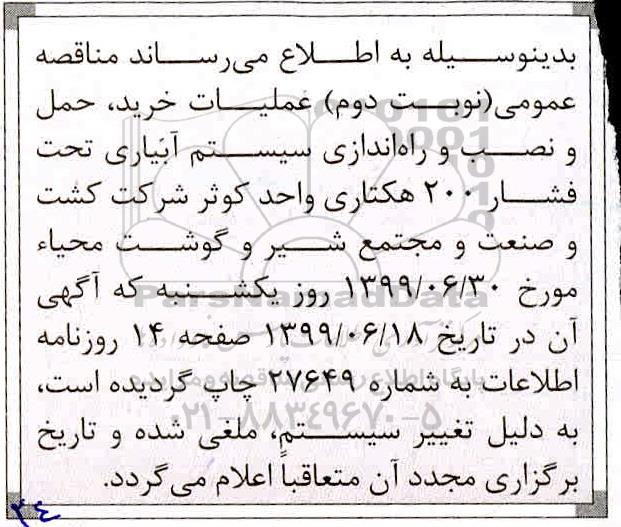 بدینوسیله به اطلاع می‌رساند مناقصه
عمومی(نوبت دوم) عملیات خرید، حمل
و نصب و راه‌اندازی سیستم آبیاری تحت
فشار ۲۰۰ هکتاری واحد کوثر شرکت کشت
و صنعت و مجتمع شیر و گوشت محیاء
مورخ ۱۳۹۹/۰۶/۳۰ روز یکشنبه که آگهی
آن در تاریخ ۱۳۹۹/۰۶/۱۸ صفحه ۱۴ روزنامه
اطلاعات به شماره ۲۷۶۴۹ چاپ گردیده است،
به دلیل تغییر سیستم، ملغی شده و تاریخ
برگزاری مجدد آن متعاقباً اعلام می‌گردد.
ParsNamadData
۰۲۱-۸۸۳۴۹۶۷۰-۵